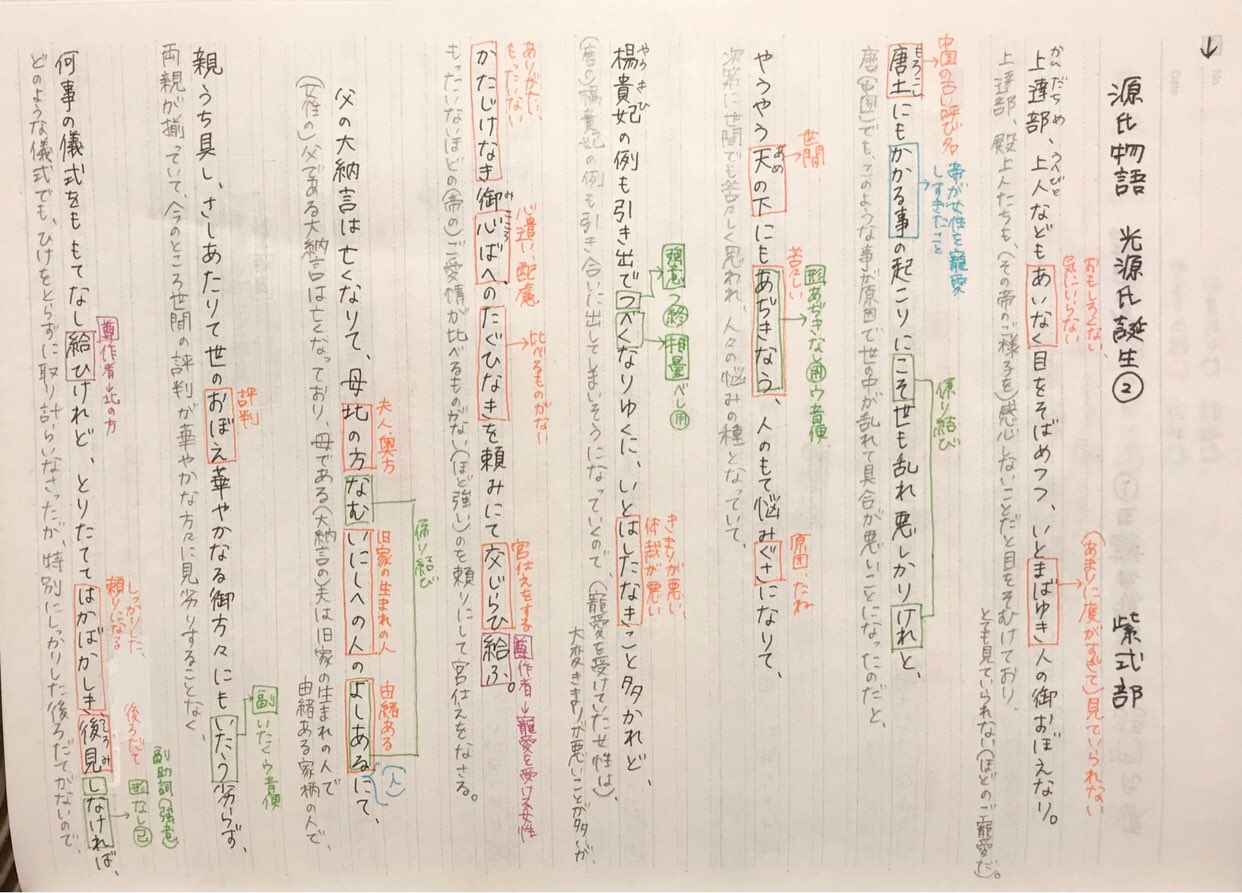 ↓
源氏物語 光源氏誕生② 紫式部
かんだちめ うへびと
おもしろくない、
気にいらない
(あまりに度がすぎて)見ていられない
上達部、上人などもあいなく目をそばめつつ、いとまばゆき人の御おぼえなり。
上達部、殿上人たちも、(その帝のご様子を)感心しないことだと目をそむけており、
とても見ていられない(ほどのご寵愛だ)。
中国の古い呼び名
帝が女性を寵愛
しすぎたこと
係り結び
もろこし
唐土にもかかる事の起こりにこそ世も乱れ悪しかりけれと、
唐(中国)でも、このような事が原因で世の中が乱れて具合が悪いことになったのだと、
世間
苦々しい
形あぢきなし用ウ音便
原因、たね
あめ
やうやう天の下にもあぢきなう、人のもて悩みぐさになりて、
次第に世間でも苦々しく思われ、人々の悩みの種となっていて、
強意つ終 推量べし用
きまりが悪い、
体裁が悪い
やうきひ
楊貴妃の例も引き出でつべくなりゆくに、いとはしたなきこと多かれど、
(唐の)楊貴妃の例も引き合いに出してしまいそうになっていくので、(寵愛を受けていた女性は)、
大変きまりが悪いことが多いが、
ありがたい、
もったいない
心遣い、配慮
比べるものがない
宮仕えをする
尊作者→寵愛を受ける女性
みこころ
かたじけなき御心ばへのたぐひなきを頼みにて交じらひ給ふ。
もったいないほどの(帝の)ご愛情が比べるものがない(ほど強い)のを頼りにして宮仕えをなさる。
夫人、奥方
係り結び
旧家の生まれの人
由緒ある
(人)
父の大納言は亡くなりて、母北の方なむいにしへの人のよしあるにて、
(女性の)父である大納言は亡くなっており、母である(大納言の)夫は旧家の生まれの人で
由緒ある家柄の人で、
評判
副いたくウ音便
親うち具し、さしあたりて世のおぼえ華やかなる御方々にもいたう劣らず、
両親が揃っていて、今のところ世間の評判が華やかな方々に見劣りすることなく、
尊作者→北の方
しっかりした、
頼りになる
後ろだて
副助詞(強意)
形なし已
うしろみ
何事の儀式をももてなし給ひけれど、とりたててはかばかしき後見しなければ、
どのような儀式でも、ひけをとらずに取り計らいなさったが、特別にしっかりした後ろだてがないので、